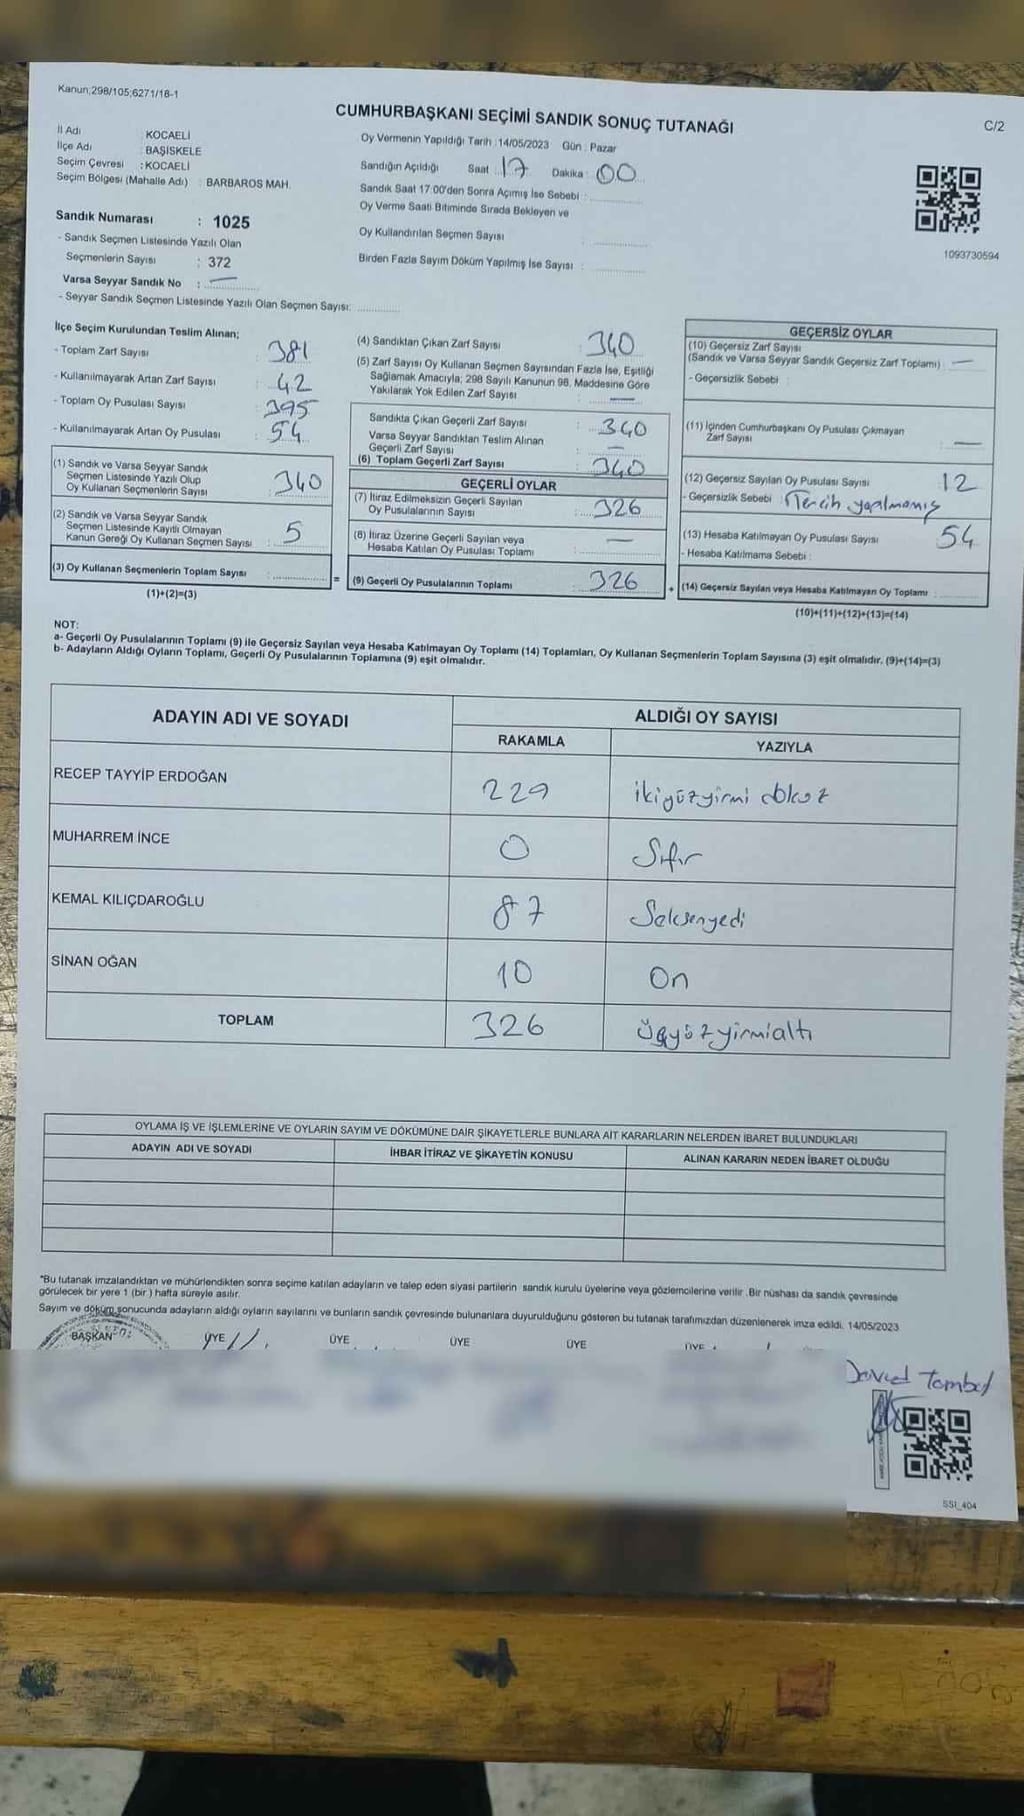 Kanun;298/105;6271/18-1
CUMHURBAŞKANI SEÇİMİ SANDIK SONUÇ TUTANAĞI
C/2
İl Adı : KOCAELİ
İlçe Adı : BAŞİSKELE
Seçim Çevresi : KOCAELİ
Seçim Bölgesi (Mahalle Adı) : BARBAROS MAH.
Oy Vermenin Yapıldığı Tarih : 14/05/2023 Gün : Pazar
Sandığın Açıldığı Saat : 17 Dakika : 00
Sandık Saat 17:00'den Sonra Açımış İse Sebebi :
Oy Verme Saati Bitiminde Sırada Bekleyen ve
Oy Kullandırılan Seçmen Sayısı :
Birden Fazla Sayım Döküm Yapılmış İse Sayısı :
1093730594
Sandık Numarası : 1025
- Sandık Seçmen Listesinde Yazılı Olan
Seçmenlerin Sayısı : 372
Varsa Seyyar Sandık No : —
- Seyyar Sandık Seçmen Listesinde Yazılı Olan Seçmen Sayısı:
İlçe Seçim Kurulundan Teslim Alınan;
- Toplam Zarf Sayısı : 381
- Kullanılmayarak Artan Zarf Sayısı : 42
- Toplam Oy Pusulası Sayısı : 395
- Kullanılmayarak Artan Oy Pusulası : 54
(1) Sandık ve Varsa Seyyar Sandık
Seçmen Listesinde Yazılı Olup
Oy Kullanan Seçmenlerin Sayısı : 340
(2) Sandık ve Varsa Seyyar Sandık
Seçmen Listesinde Kayıtlı Olmayan
Kanun Gereği Oy Kullanan Seçmen Sayısı : 5
(3) Oy Kullanan Seçmenlerin Toplam Sayısı :
(1)+(2)=(3)
=
(4) Sandıktan Çıkan Zarf Sayısı : 340
(5) Zarf Sayısı Oy Kullanan Seçmen Sayısından Fazla İse, Eşitliği
Sağlamak Amacıyla; 298 Sayılı Kanunun 98. Maddesine Göre
Yakılarak Yok Edilen Zarf Sayısı : —
Sandıkta Çıkan Geçerli Zarf Sayısı : 340
Varsa Seyyar Sandıktan Teslim Alınan
Geçerli Zarf Sayısı : —
(6) Toplam Geçerli Zarf Sayısı : 340
GEÇERLİ OYLAR
(7) İtiraz Edilmeksizin Geçerli Sayılan
Oy Pusulalarının Sayısı : 326
(8) İtiraz Üzerine Geçerli Sayılan veya
Hesaba Katılan Oy Pusulası Toplamı : —
(9) Geçerli Oy Pusulalarının Toplamı : 326
+
GEÇERSİZ OYLAR
(10) Geçersiz Zarf Sayısı
(Sandık ve Varsa Seyyar Sandık Geçersiz Zarf Toplamı) : —
- Geçersizlik Sebebi :
(11) İçinden Cumhurbaşkanı Oy Pusulası Çıkmayan
Zarf Sayısı : —
(12) Geçersiz Sayılan Oy Pusulası Sayısı : 12
- Geçersizlik Sebebi : Tercih yapılmamış
(13) Hesaba Katılmayan Oy Pusulası Sayısı : 54
- Hesaba Katılmama Sebebi :
(14) Geçersiz Sayılan veya Hesaba Katılmayan Oy Toplamı :
(10)+(11)+(12)+(13)=(14)
NOT:
a- Geçerli Oy Pusulalarının Toplamı (9) ile Geçersiz Sayılan veya Hesaba Katılmayan Oy Toplamı (14) Toplamları, Oy Kullanan Seçmenlerin Toplam Sayısına (3) eşit olmalıdır. (9)+(14)=(3)
b- Adayların Aldığı Oyların Toplamı, Geçerli Oy Pusulalarının Toplamına (9) eşit olmalıdır.
ADAYIN ADI VE SOYADI
ALDIĞI OY SAYISI
RAKAMLA YAZIYLA
RECEP TAYYİP ERDOĞAN 229 ikiyüzyirmi dokuz
MUHARREM İNCE 0 Sıfır
KEMAL KILIÇDAROĞLU 87 Seksenyedi
SİNAN OĞAN 10 On
TOPLAM 326 Üçyüzyirmialtı
OYLAMA İŞ VE İŞLEMLERİNE VE OYLARIN SAYIM VE DÖKÜMÜNE DAİR ŞİKAYETLERLE BUNLARA AİT KARARLARIN NELERDEN İBARET BULUNDUKLARI
ADAYIN ADI VE SOYADI İHBAR İTİRAZ VE ŞİKAYETİN KONUSU ALINAN KARARIN NEDEN İBARET OLDUĞU
*Bu tutanak imzalandıktan ve mühürlendikten sonra seçime katılan adayların ve talep eden siyasi partilerin sandık kurulu üyelerine veya gözlemcilerine verilir .Bir nüshası da sandık çevresinde
görülecek bir yere 1 (bir ) hafta süreyle asılır.
Sayım ve döküm sonucunda adayların aldığı oyların sayılarını ve bunların sandık çevresinde bulunanlara duyurulduğunu gösteren bu tutanak tarafımızdan düzenlenerek imza edildi. 14/05/2023
BAŞKAN ÜYE ÜYE ÜYE ÜYE ÜYE
Tombul
SSI_404